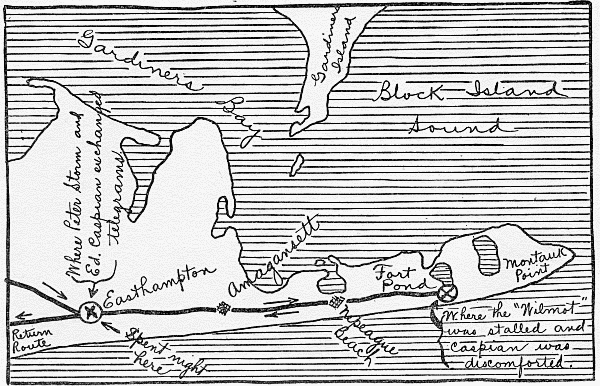 Gardiners Bay
Gardiners
Island
Block Island
Sound
Where Peter Storm and
Ed. Caspian exchanged
telegrams
Easthampton
Amagansett
Fort
Pond
Montauk
Point
Return
Route
Spent night
here
Napeague
Beach
Where the "Wilmot"
was stalled and
Caspian was
discomforted.